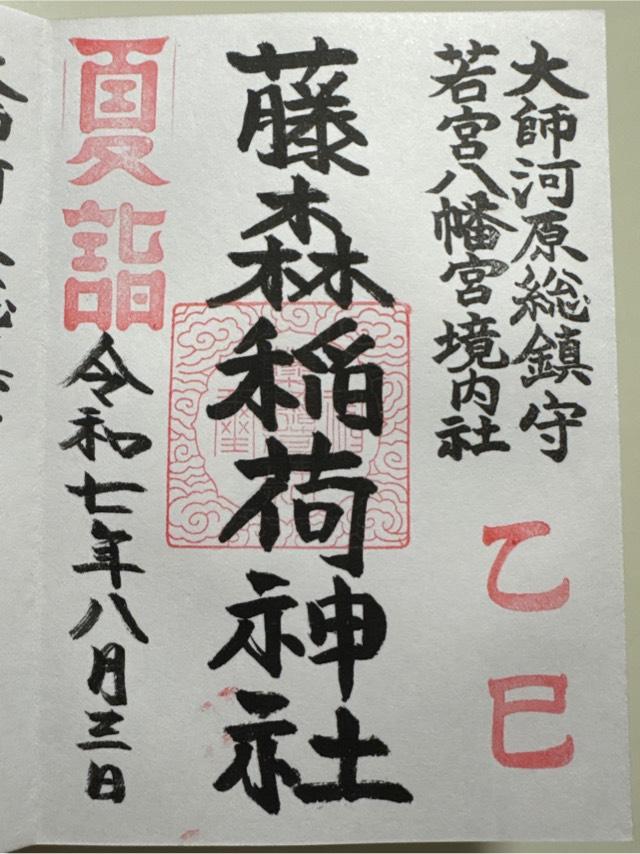 大師河原総鎮守
若宮八幡宮境内社
乙巳
藤森稲荷神社
夏詣
令和七年八月三日